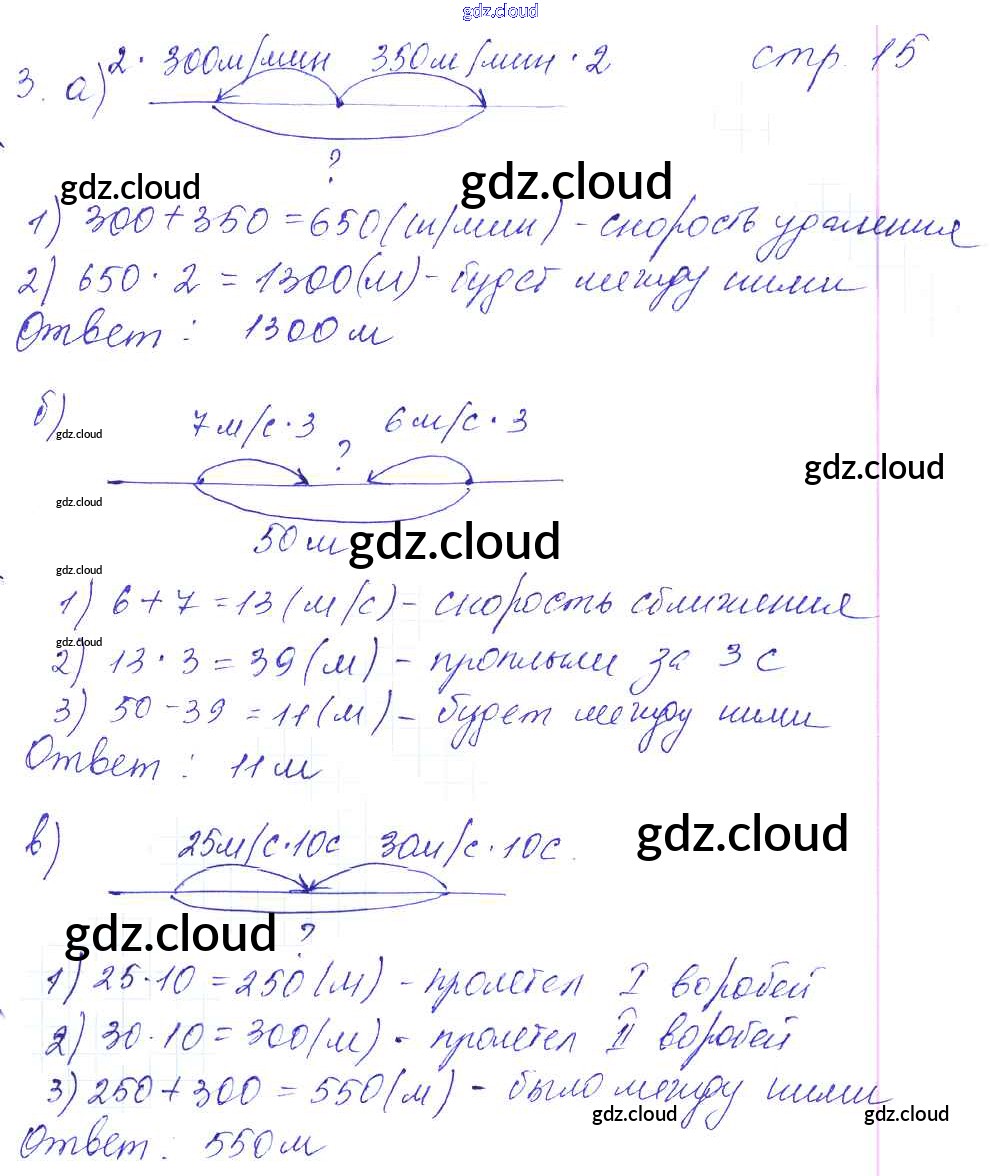 gdz.cloud
стр. 15
3. а) 2 · 300м/мин 350м/мин · 2
?
gdz.cloud gdz.cloud
1) 300 + 350 = 650 (м/мин) - скорость удаления
2) 650 · 2 = 1300 (м) - будет между ними
Ответ : 1300 м
б) 7м/с · 3 6м/с · 3
gdz.cloud
?
gdz.cloud
gdz.cloud
50 м gdz.cloud
gdz.cloud
1) 6 + 7 = 13 (м/с) - скорость сближения
gdz.cloud
2) 13 · 3 = 39 (м) - проплыли за 3 с
3) 50 - 39 = 11 (м) - будет между ними
Ответ : 11 м
в) 25м/с · 10с 30м/с · 10с.
gdz.cloud
gdz.cloud ?
1) 25 · 10 = 250 (м) - пролетел I воробей
2) 30 · 10 = 300 (м) - пролетел II воробей
3) 250 + 300 = 550 (м) - было между ними
gdz.cloud gdz.cloud
Ответ : 550 м